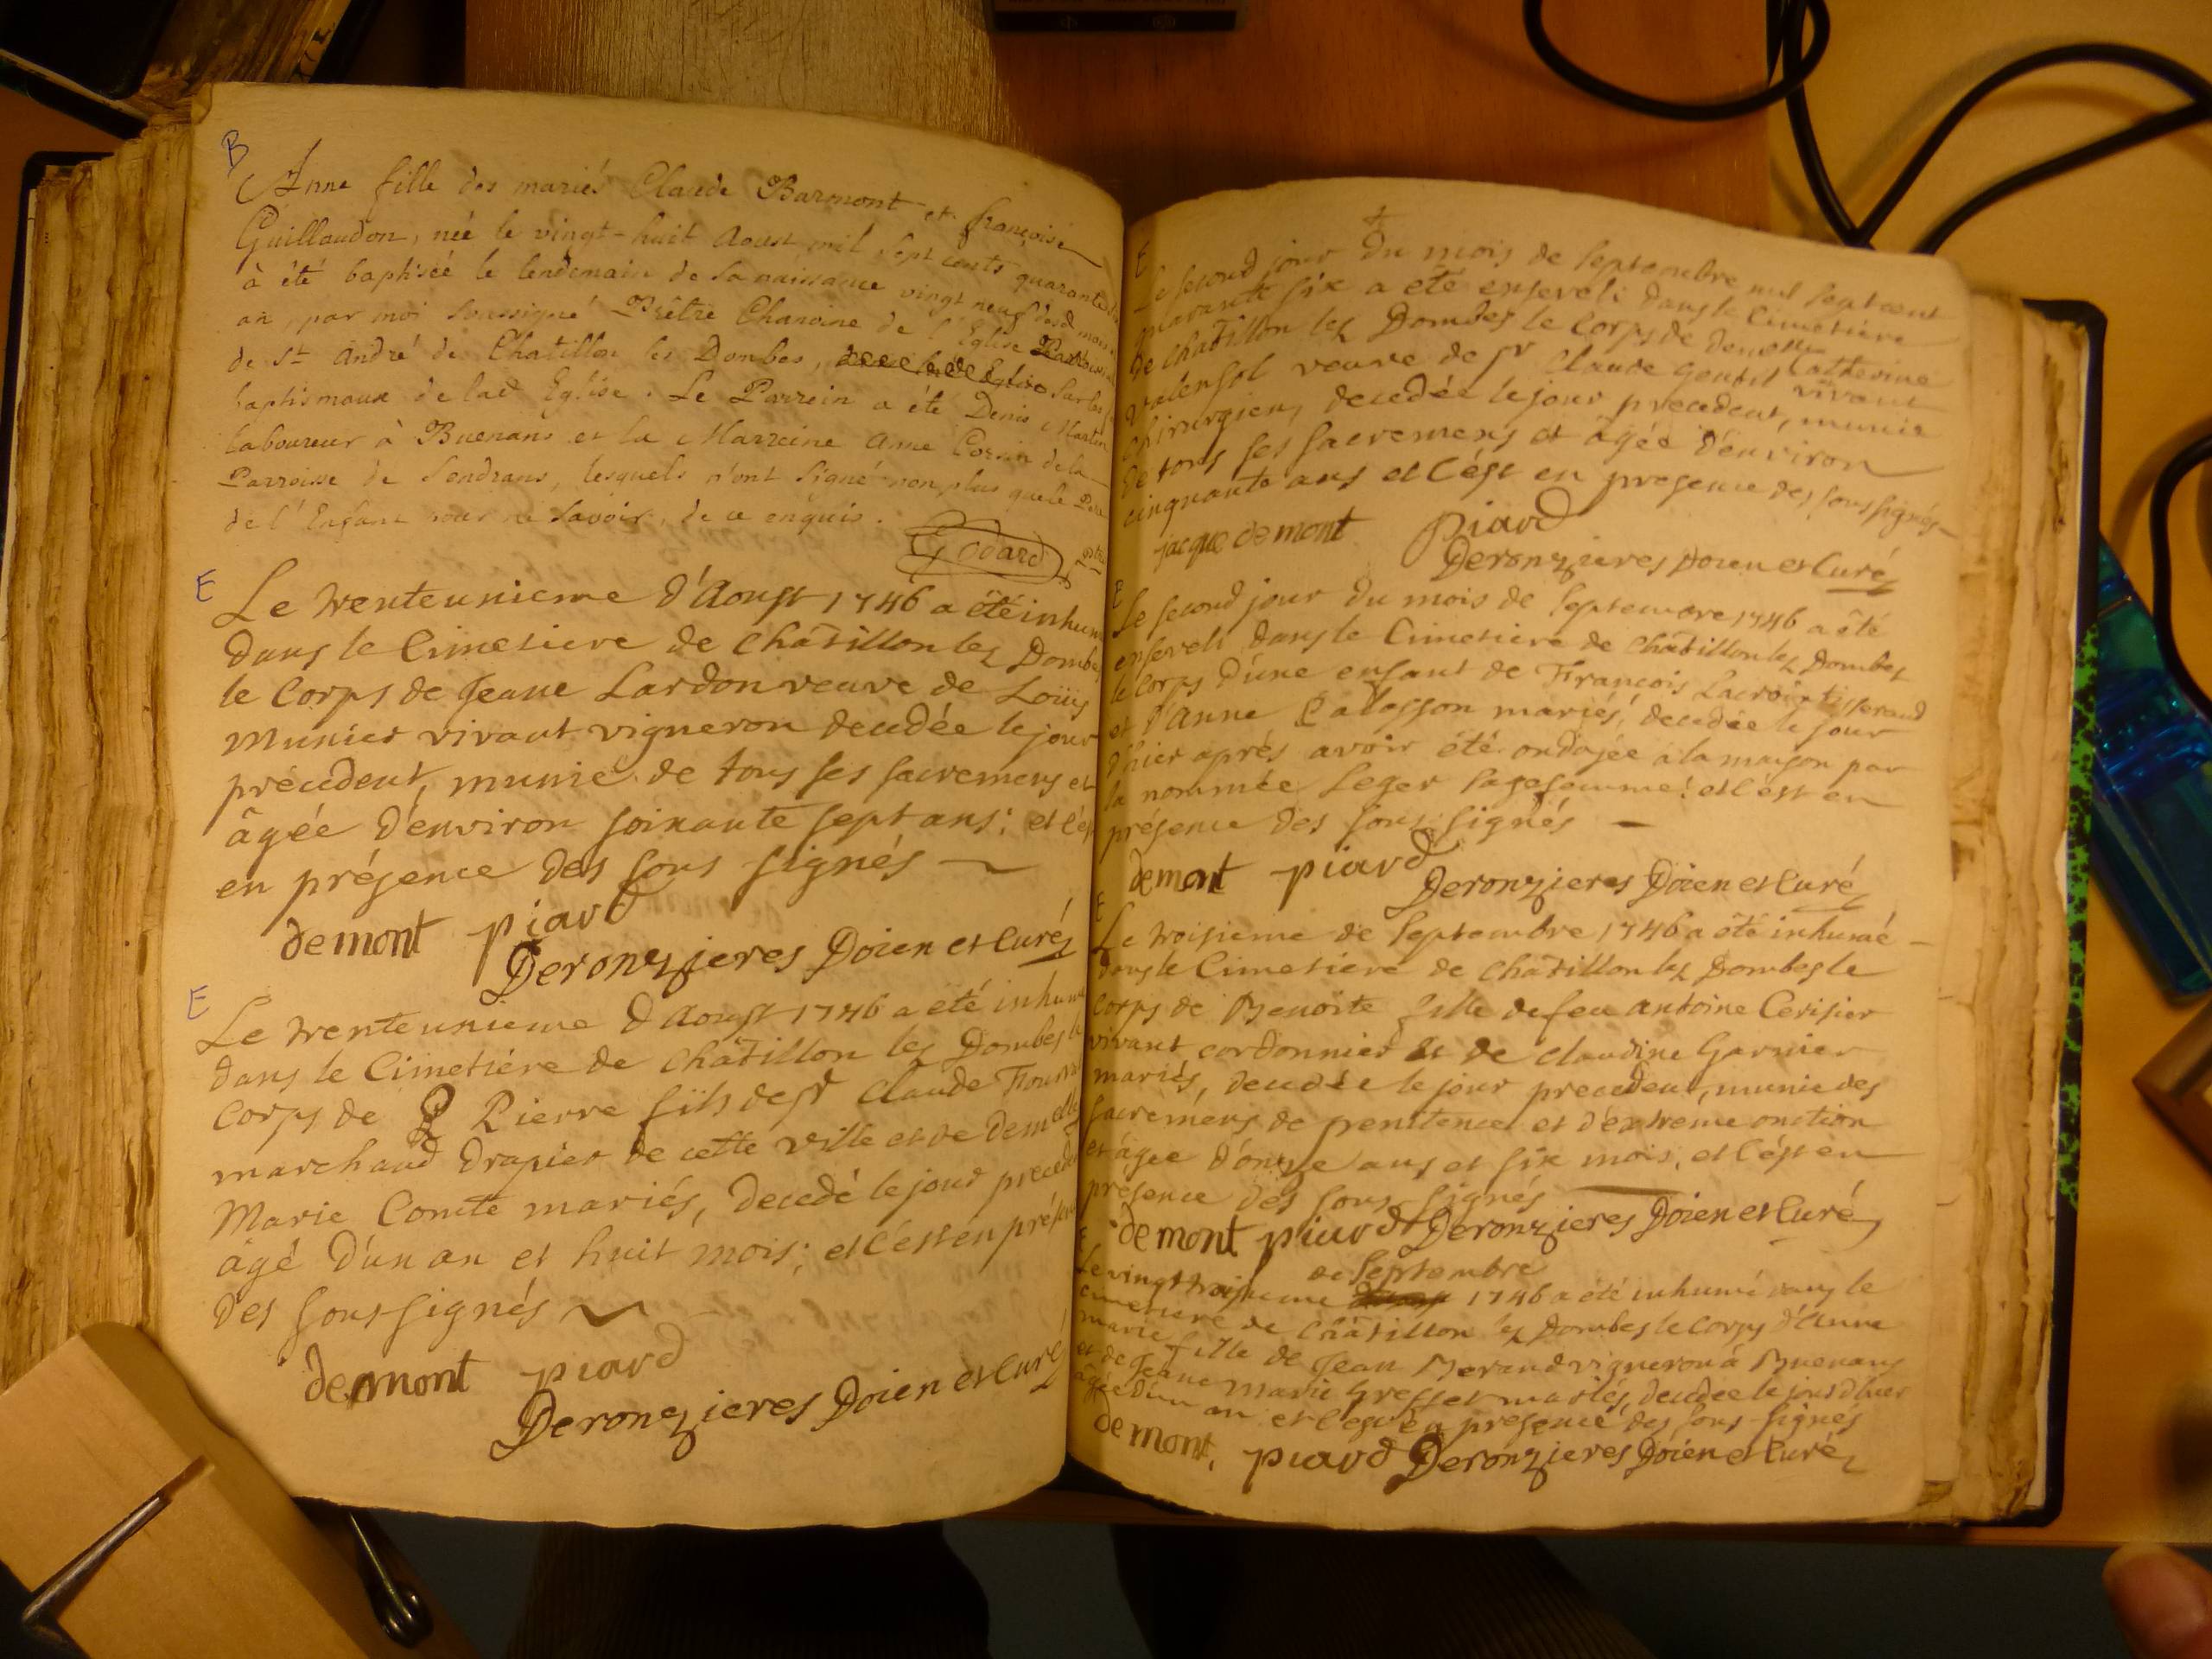 B
Anne fille des mariés Claude Barmont et françoise
Guillaudon, née le vingt-huit Aoust mil sept cents quarante
à été baptisée le lendemain de sa naissance vingt neuf dud mois
an, par moi soussigné Prêtre Chanoine de l'Eglise
de St André de Chatillon les Dombes, sur les
baptismaux de lad Eglise. Le Parrein a été Denis Martin
laboureur à Buenans et la Marreine Anne de la
Parroisse de Sendrans, lesquels n'ont signé non plus que le Pere
de l'Enfant pour ne savoir, de ce enquis.
Godard
E
Le trenteunieme d'Aoust 1746 a été inhum
dans le Cimetiere de Châtillon lez Dombes
le Corps de Jeane Lardon veuve de Loüis
Munier vivant vigneron decedée le jour
précedent, munie de tous ses sacremens et
âgée d'environ soixante sept ans; et c'est
en présence des sous signés
demont piard
Deronzieres Doien et Curé
E
Le trenteunieme d'Aoust 1746 a été inhumé
dans le Cimetiére de châtillon lez Dombes le
Corps de P Pierre fils de sr Claude
marchand drapier de cette ville et de demelle
Marie Comte mariés, decedé le jour preced
âgé d'un an et huit mois; et c'est en présen
des sous signés
demont piard
Deronzieres Doien et Curé
E
Le second jour du mois de septembre mil septcent
quarante six a été enseveli dans le Cimetiére
de chatillon lez Dombes le Corps de demelle Catherine
Valensol veuve de sr Claude Gentil vivant
Chirurgien, decedée le jour precedent, munie
de tous ses sacremens et âgée d'environ
cinquante ans et c'est en presence des sous signés
jacque demont piard
Deronzieres Doien et Curé
E
Le second jour du mois de septembre 1746 a été
enseveli dans le Cimetiére de châtillon lez Dombes
le Corps d'une enfant de François Lacroix tisserand
et d'Anne Palosson mariés, decedée le jour
d'hier aprés avoir été ondojée a la maison par
la nommée Leger sagefemme: et c'est en
présence des sous signés
demont piard
Deronzieres Doien et Curé
E
Le troisieme de septembre 1746 a été inhumé
dans le Cimetiére de châtillon lez Dombes le
Corps de Benoite fille de feu antoine Cerisier
vivant cordonnier et de claudine Garnier
mariés, decedée le jour precedent, munie des
sacrémens de penitence et d'extreme onction
et âgée d'onze ans et six mois, et c'est en
présence des sous signés
demont piard Deronzieres Doien et Curé
E
de septembre
Le vingt troisieme 1746 a été inhumé dans le
Cimetiere de Châtillon lez Dombes le Corps d'Anne
marie fille de Jean Morand vigneron à Buenans
et de Jeane Marie Greffet mariés, decedée le jour d'hier
âgée d'un an et c'est en presence des sous signés
demont, piard Deronzieres Doien et Curé